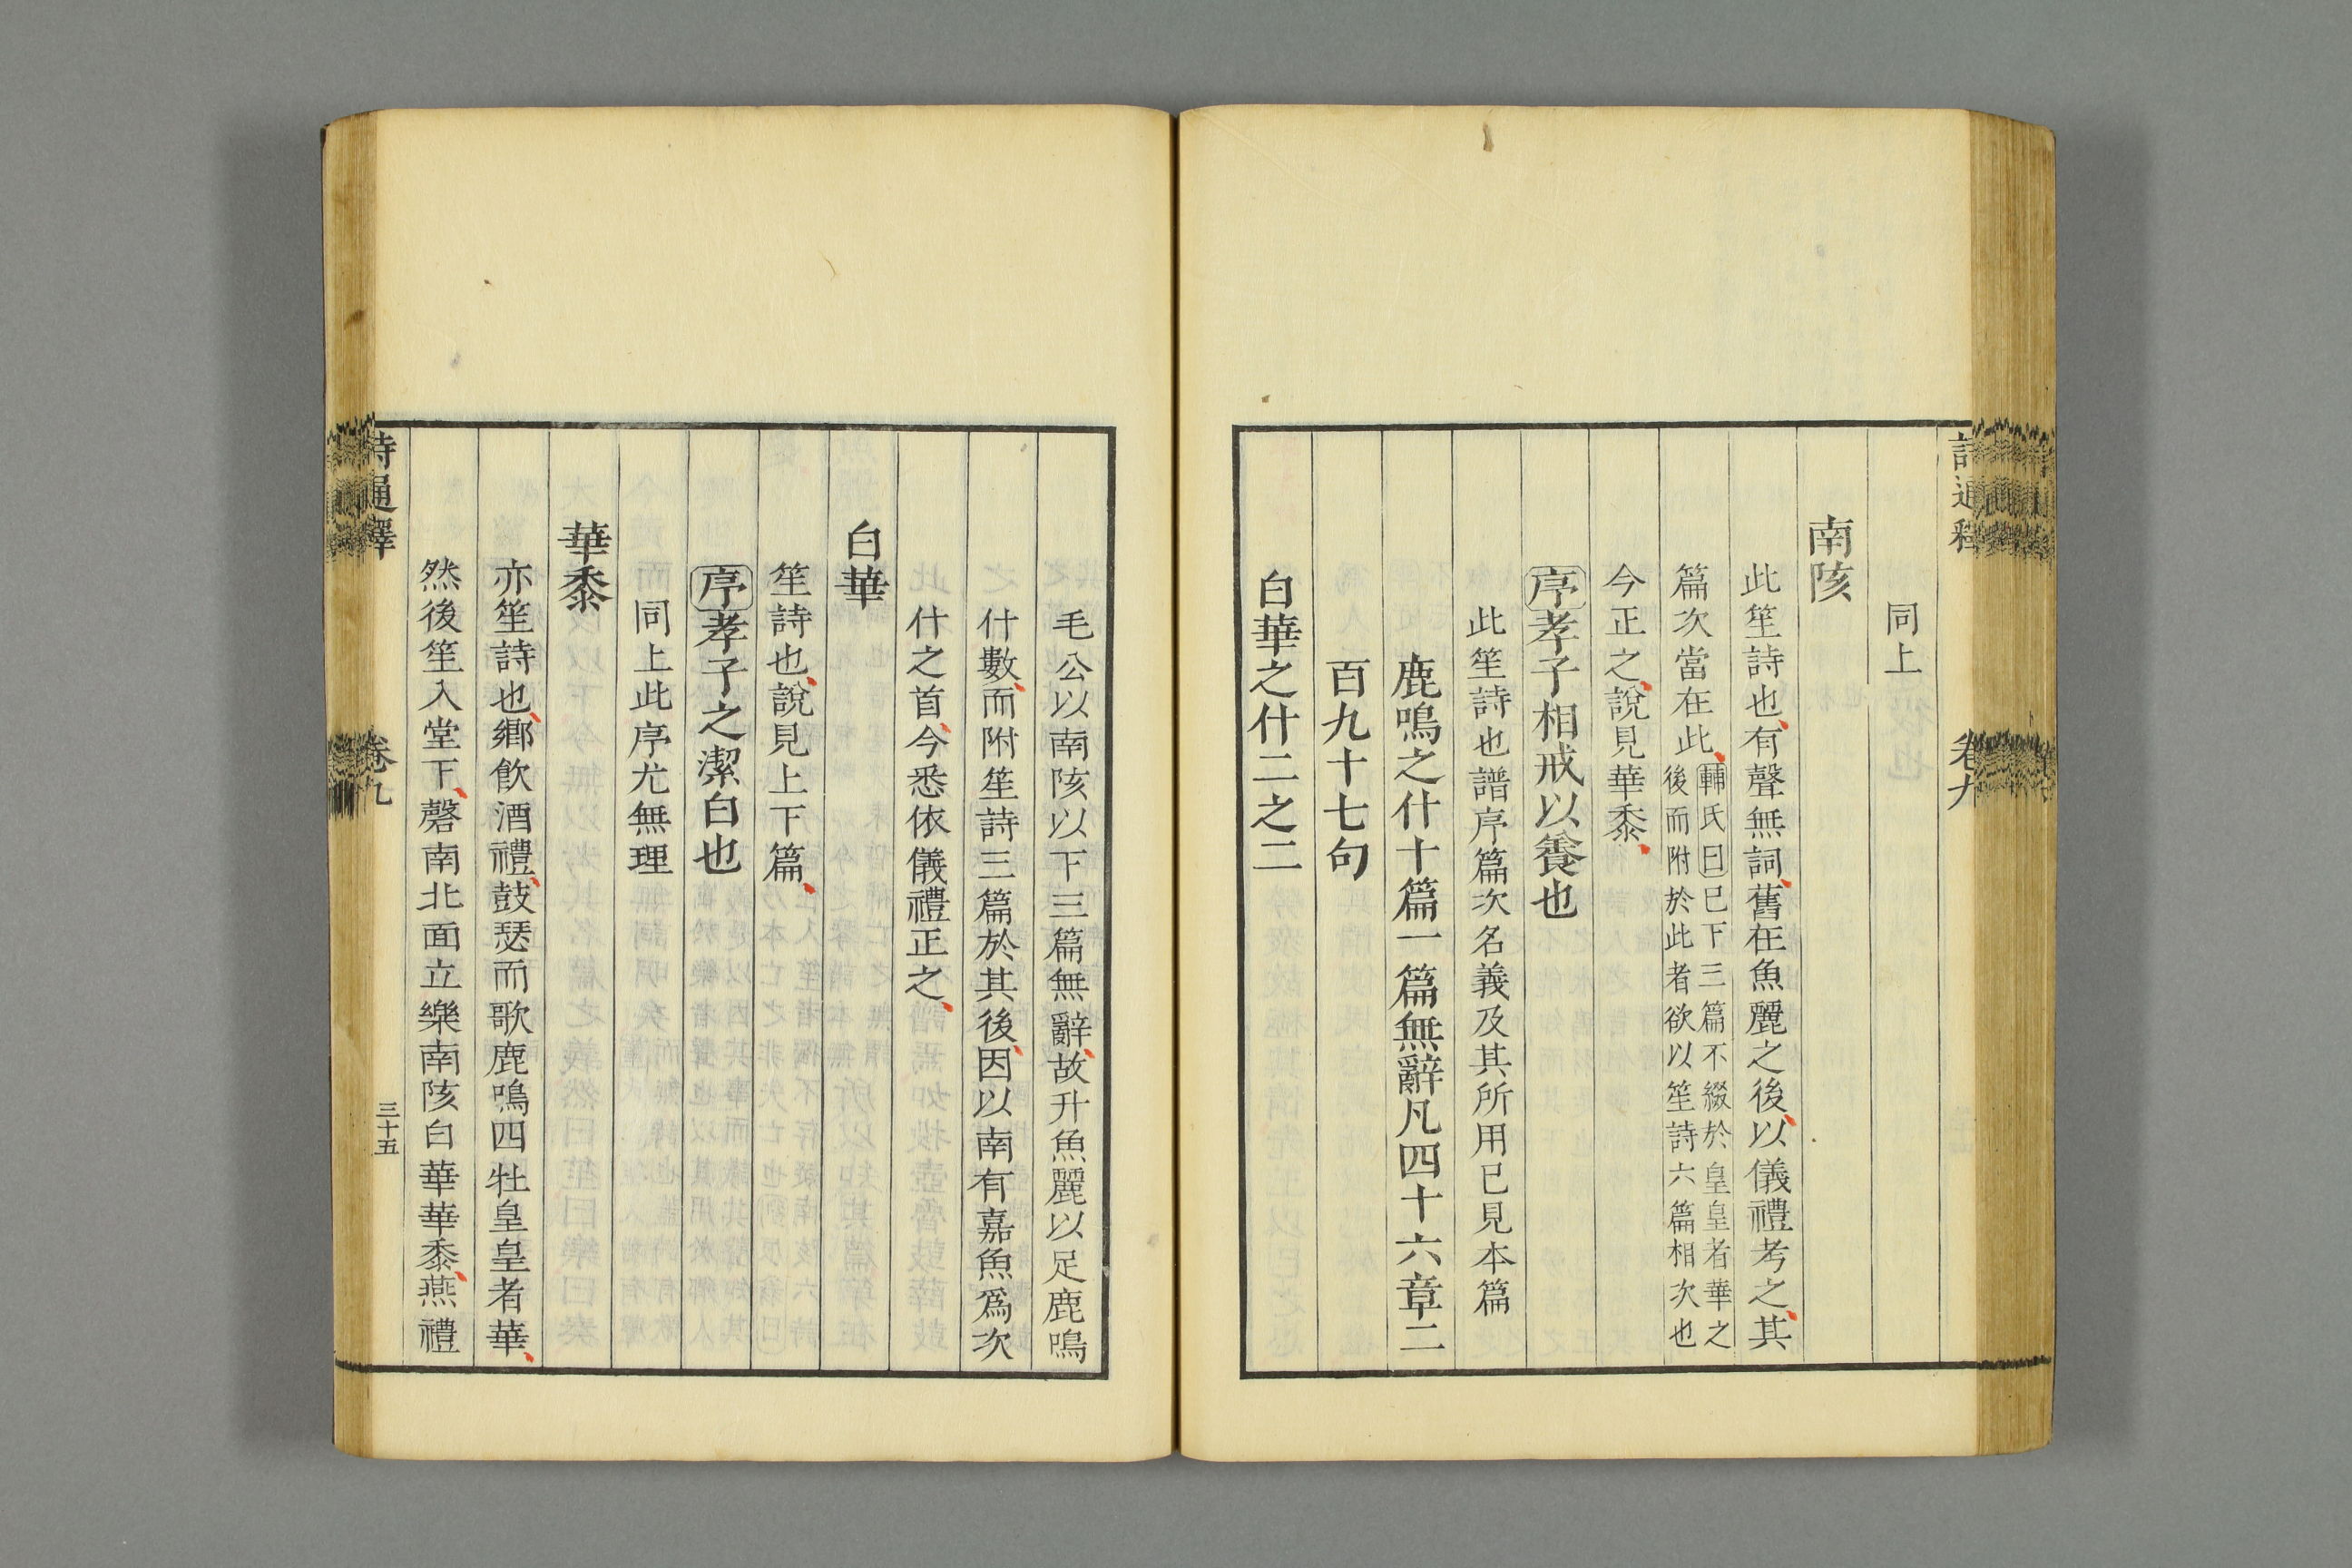 詩通釋 卷九
同上
南陔
此笙詩也有聲無詞舊在魚麗之後以儀禮考之其
篇次當在此輔氏曰已下三篇不綴於皇皇者華之
後而附於此者欲以笙詩六篇相次也
今正之說見華黍
序孝子相戒以養也
此笙詩也譜序篇次名義及其所用已見本篇
鹿鳴之什十篇一篇無辭凡四十六章二
百九十七句
白華之什二之二
毛公以南陔以下三篇無辭故升魚麗以足鹿鳴
什數而附笙詩三篇於其後因以南有嘉魚爲次
什之首今悉依儀禮正之
白華
笙詩也說見上下篇
序孝子之潔白也
同上此序尤無理
華黍
亦笙詩也鄉飲酒禮鼓瑟而歌鹿鳴四牡皇皇者華
然後笙入堂下磬南北面立樂南陔白華華黍燕禮
詩通釋 卷九 三十五